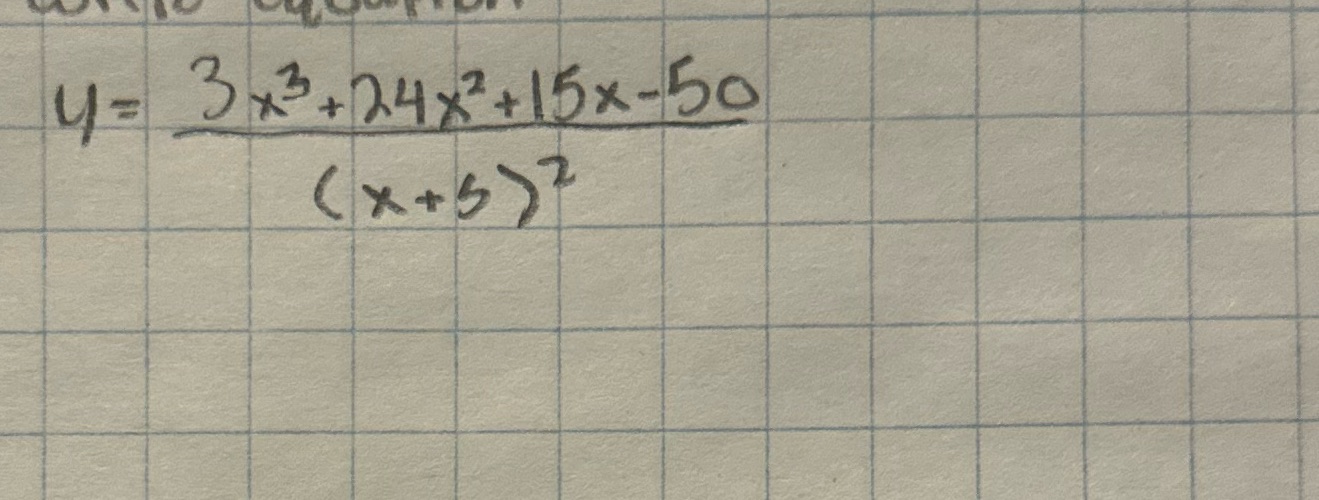 y = 3x³+24x²+15x-50
(x+5)²